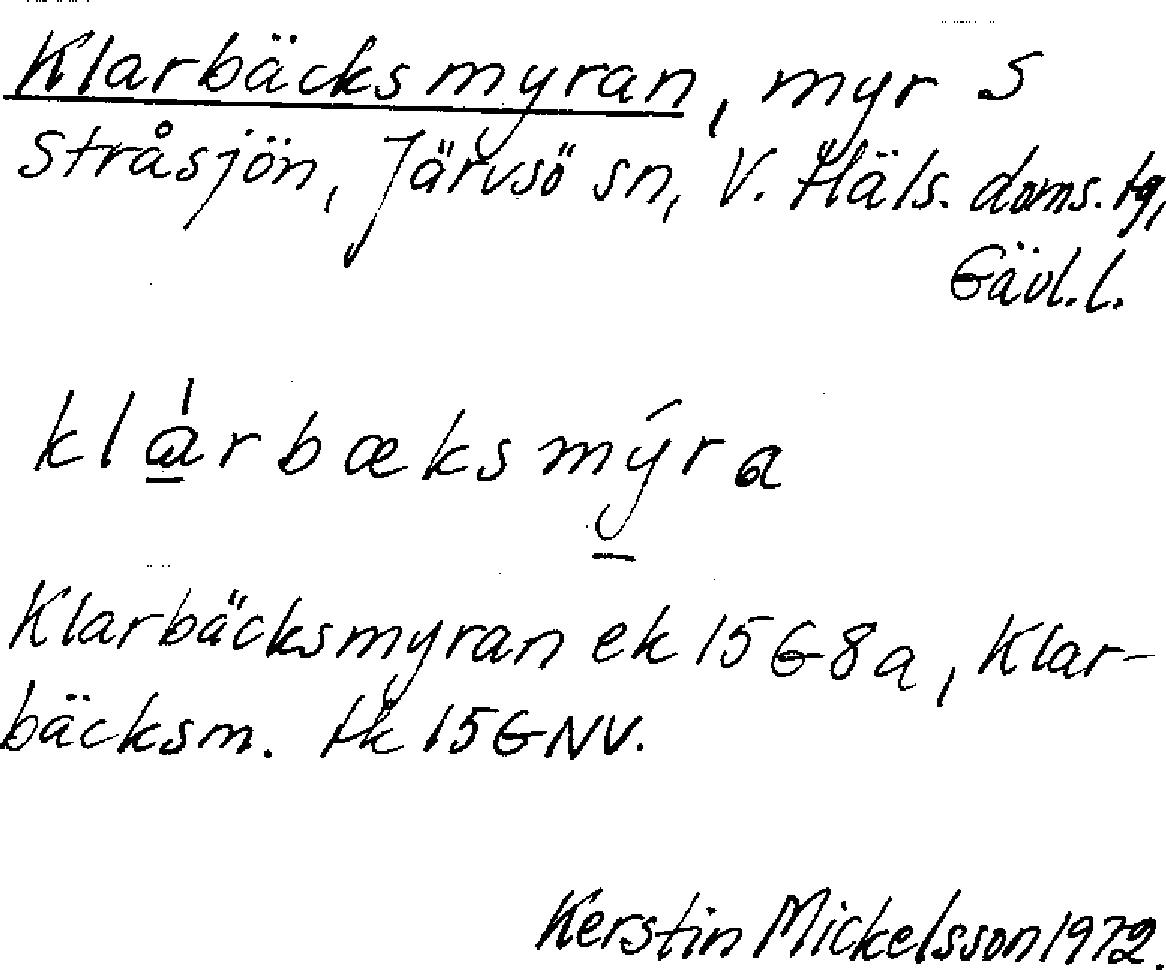 Klarbäcksmyran, myr S
Stråsjön, Järvsö sn, V. Häls. doms. tg,
Gävl. l.
klàrbæksmýra
Klarbäcksmyran ek 15G8a, Klar-
bäcksm. tk 15GNV.
Kerstin Mickelsson 1972.